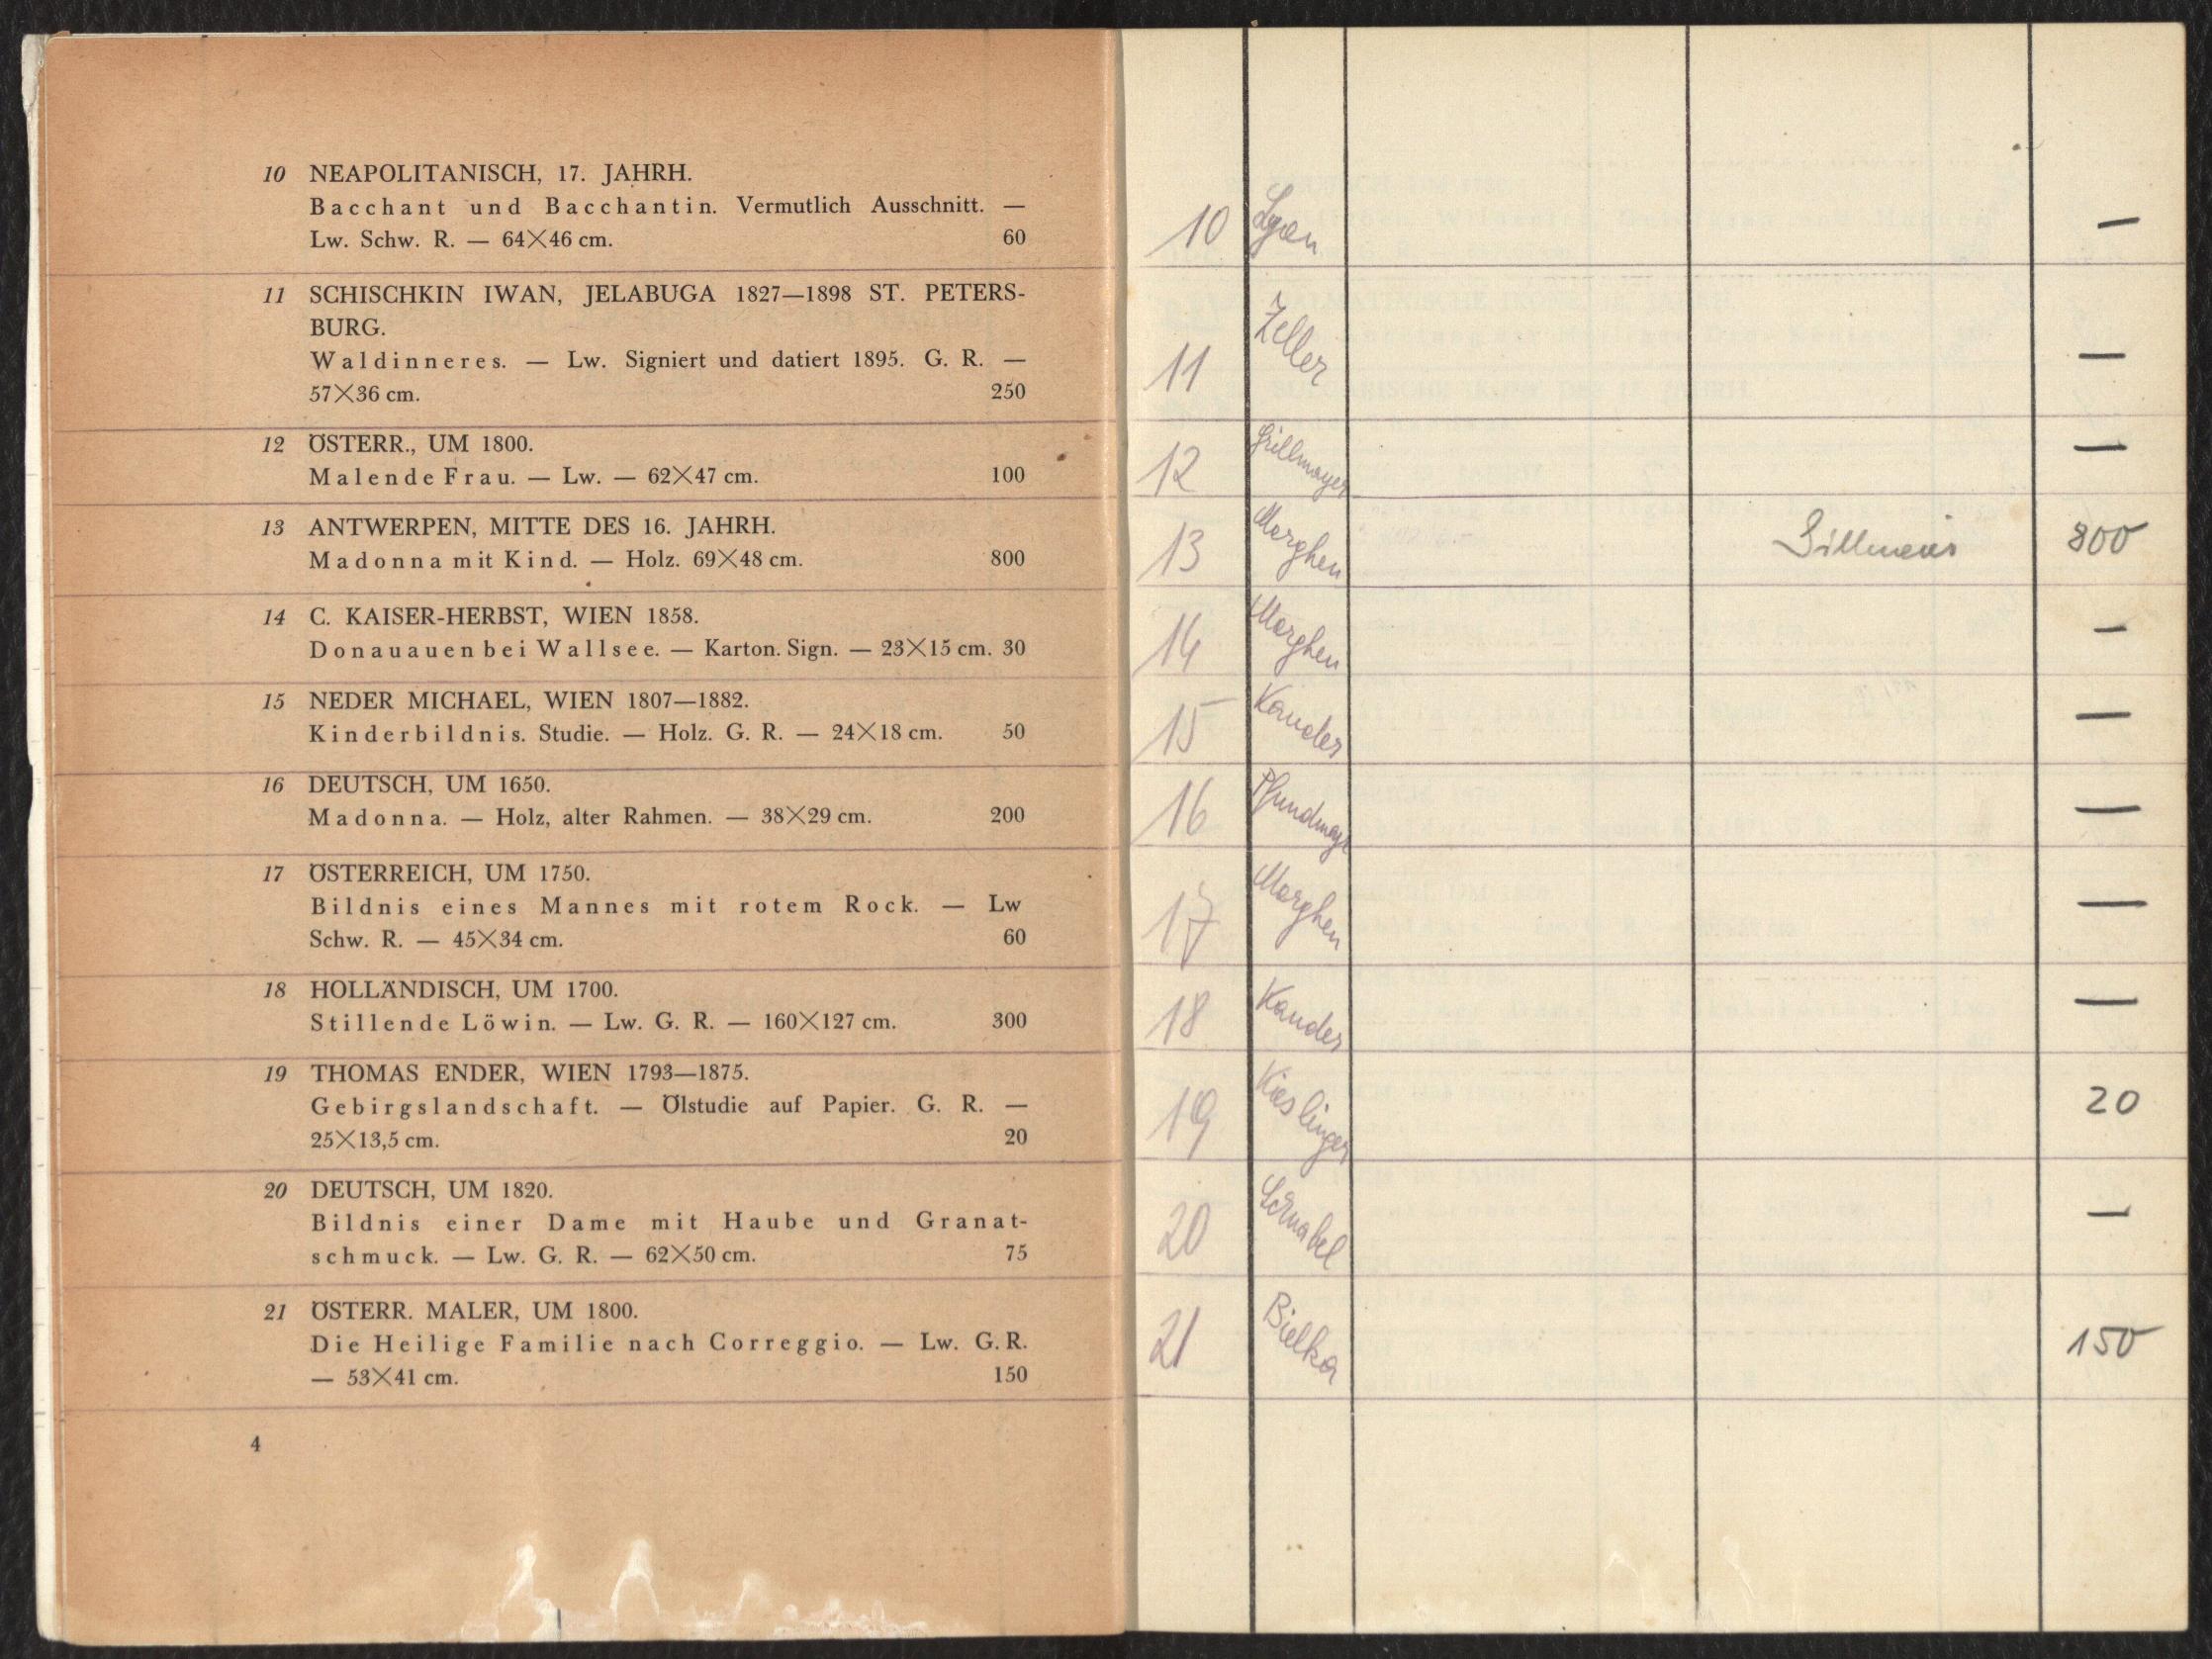 10 NEAPOLITANISCH, 17. JAHRH.
Bacchant und Bacchantin. Vermutlich Ausschnitt. —
Lw. Schw. R. — 64×46 cm. 60
11 SCHISCHKIN IWAN, JELABUGA 1827—1898 ST. PETERS-
BURG.
Waldinneres. — Lw. Signiert und datiert 1895. G. R. —
57×36 cm. 250
12 ÖSTERR., UM 1800.
Malende Frau. — Lw. — 62×47 cm. 100
13 ANTWERPEN, MITTE DES 16. JAHRH.
Madonna mit Kind. — Holz. 69×48 cm. 800
14 C. KAISER-HERBST, WIEN 1858.
Donauauen bei Wallsee. — Karton. Sign. — 23×15 cm. 30
15 NEDER MICHAEL, WIEN 1807—1882.
Kinderbildnis. Studie. — Holz. G. R. — 24×18 cm. 50
16 DEUTSCH, UM 1650.
Madonna. — Holz, alter Rahmen. — 38×29 cm. 200
17 ÖSTERREICH, UM 1750.
Bildnis eines Mannes mit rotem Rock. — Lw
Schw. R. — 45×34 cm. 60
18 HOLLÄNDISCH, UM 1700.
Stillende Löwin. — Lw. G. R. — 160×127 cm. 300
19 THOMAS ENDER, WIEN 1793—1875.
Gebirgslandschaft. — Ölstudie auf Papier. G. R. —
25×13,5 cm. 20
20 DEUTSCH, UM 1820.
Bildnis einer Dame mit Haube und Granat-
schmuck. — Lw. G. R. — 62×50 cm. 75
21 ÖSTERR. MALER, UM 1800.
Die Heilige Familie nach Correggio. — Lw. G. R.
— 53×41 cm. 150
4
10 —
11 Zeller —
12 Grillmayer —
13 Morghen 800
14 Morghen —
15 Kander —
16 Pfundmayr —
17 Morghen —
18 Kander —
19 Kieslinger 20
20 Schnabel —
21 Bielka 150